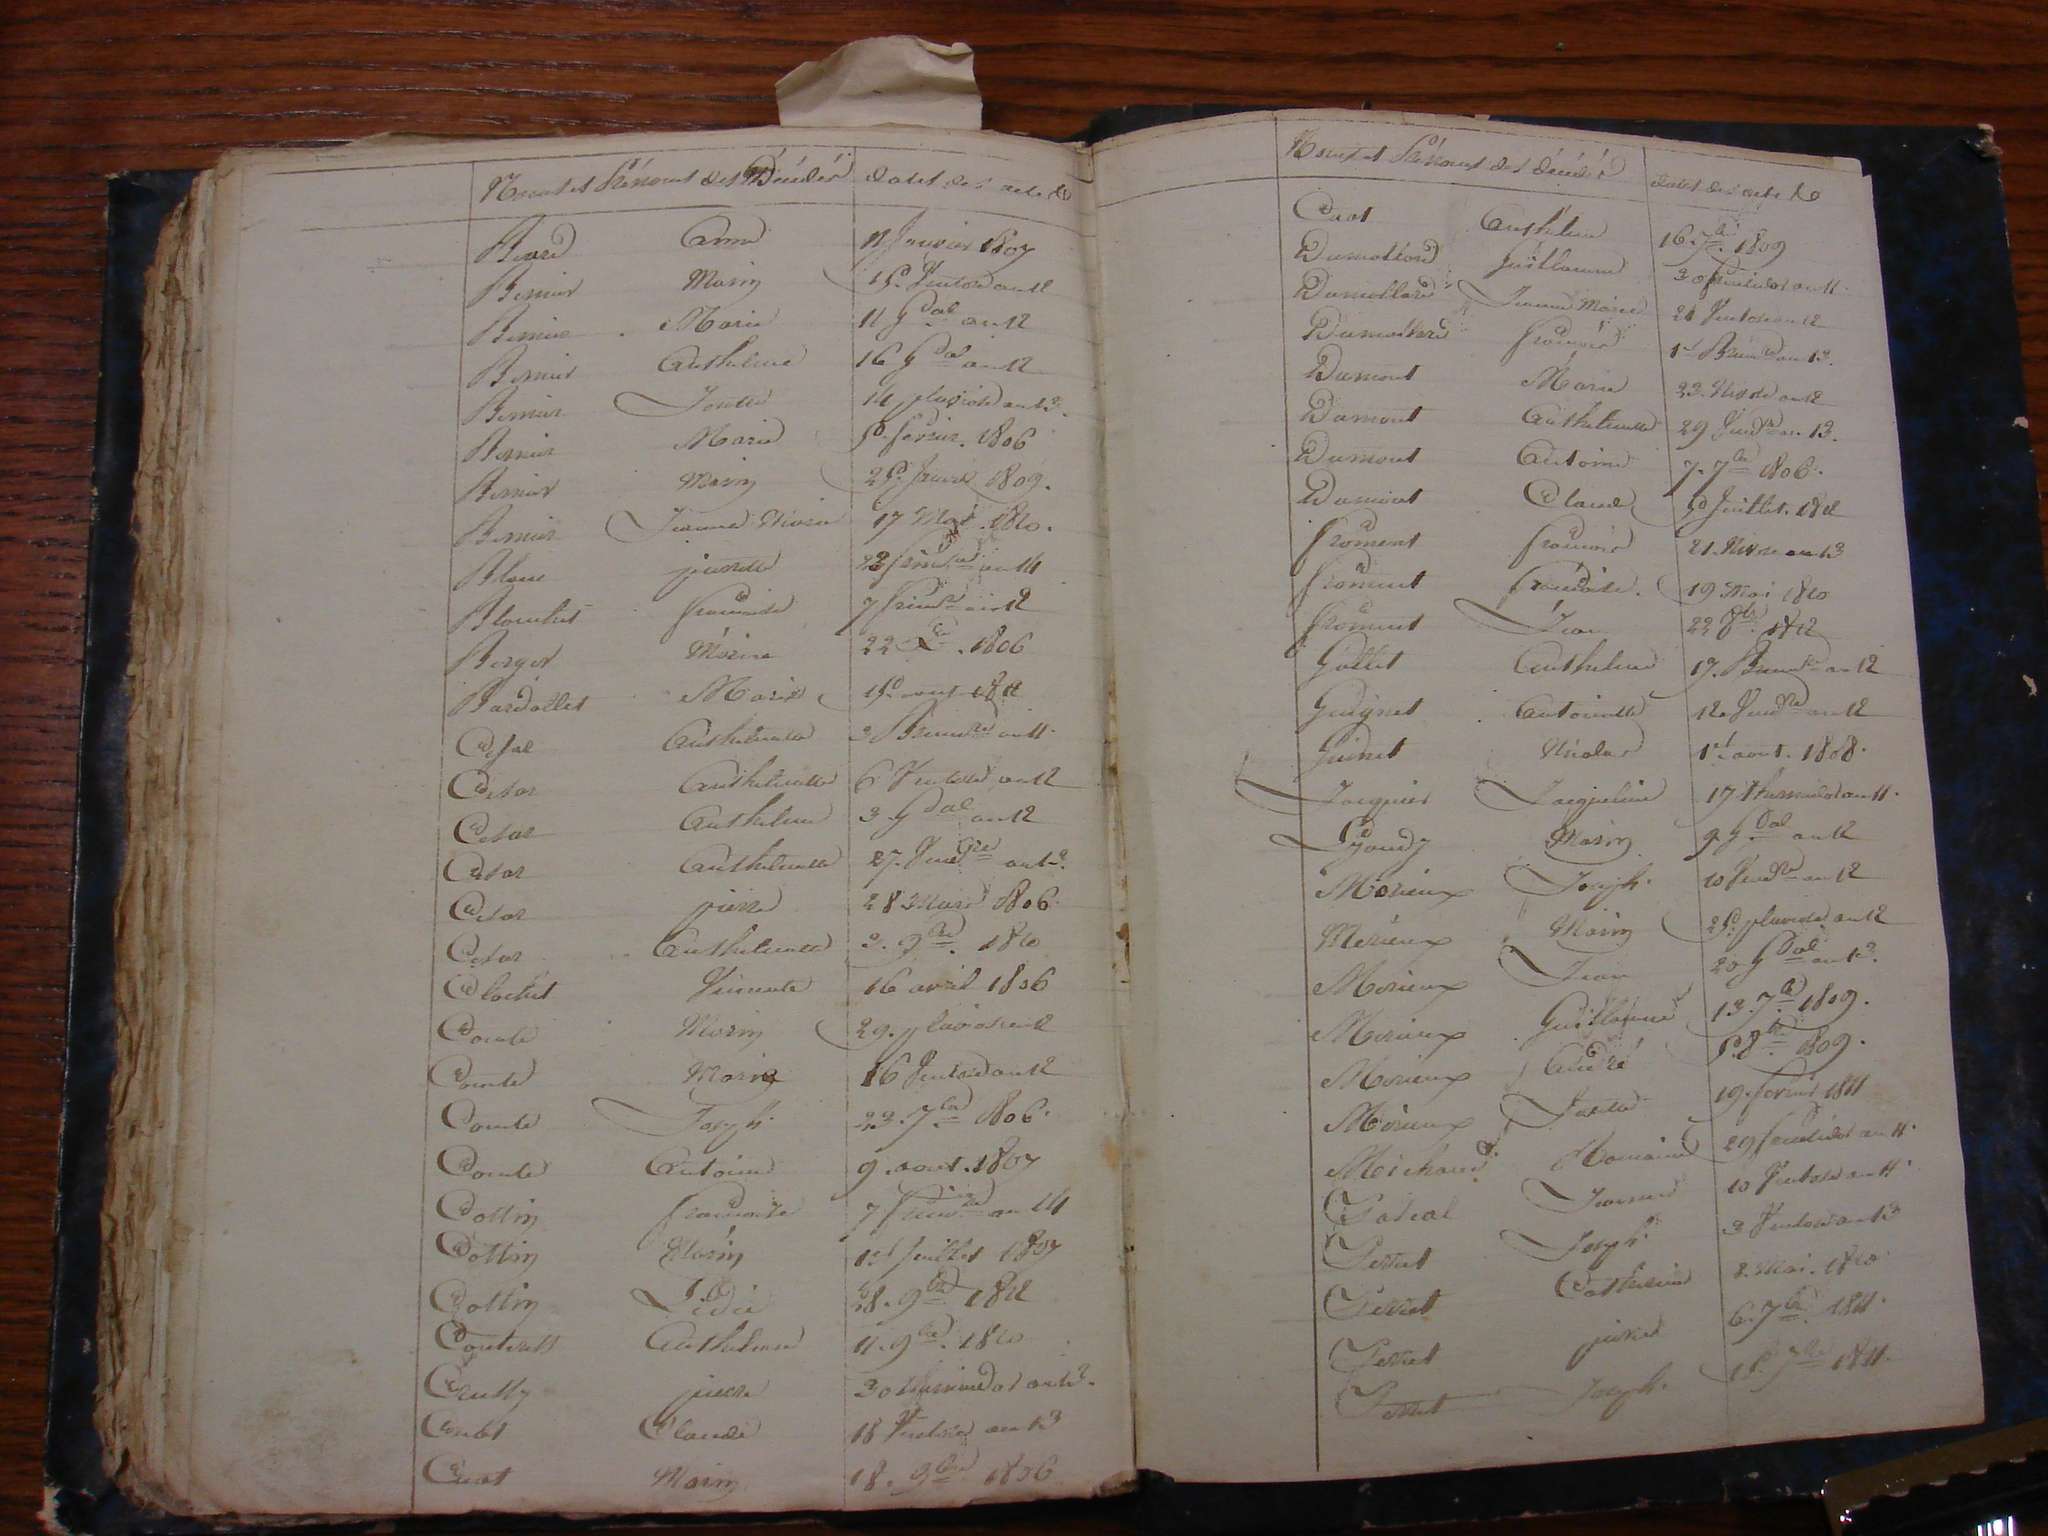 Noms et Prénoms des Décédés dates des actes
Beard Anne 11 Janvier 1807
Bernier Marin 15 Ventose an 12
Bernier Marie 11 Gal an 12
Bernier Anthelme 16 Gal an 12
Bernier 14 pluviose an 13
Bernier Marie 5 fevrier 1806
Bernier Marin 25 Janvier 1809
Bernier Jeanne Marie 17 Mai 1810
Blanc pierrette 23 frimre an 14
Blanchet francoise 7 frimre an 12
Berger 22 1806
Bardollet Marie 15 aout 1812
Anthelmette 3 Brumre an 11
Cesar Anthelmette 6 Ventose an 12
Cesar Anthelme 3 Gal an 12
Cesar Anthelmette 27 Vendre an 13
Cesar pierre 28 Mars 1806
Cesar Anthelmette 3 9bre 1810
Clochet 16 avril 1806
Comte Marin 29 pluviose an 12
Comte Marin 16 Ventose an 12
Comte Joseph 23 7bre 1806
Comte Antoine 9 aout 1807
Cottin francoise 7 frimre an 14
Cottin Marin 1er Juillet 1807
Cottin 28 9bre 1812
Anthelme 11 9bre 1810
pierre 30 thermidor an 13
Claude 18 Ventose an 13
Cuot Marin 18 9bre 1806
Noms et Prénoms des décédés dates des actes
Cuot Anthelme 16 7bre 1809
Dumollard Guillaume 30 fructidor an 11
Dumollard Jeanne Marie 21 Ventose an 12
Dumollard francois 1er Brumre an 13
Dumont Marie 23 Nivose an 12
Dumont Anthelmette 29 Vendre an 13
Dumont Antoine 7 7bre 1806
Dumont Claude 5 Juillet 1812
froment francois 21 Nivose an 13
froment francoise 19 Mai 1810
froment Jean 22 8bre 1812
Gallet Anthelme 17 Brumre an 12
Guignet Antoinette 12 Vendre an 12
Guinet Nicolas 1er aout 1808
Jacquier Jacqueline 17 thermidor an 11
Lyaudy Marin 9 Gal an 12
Morieux Joseph 10 Vendre an 12
Mérieux Marin 25 pluviose an 12
Morieux Jean 20 Gal an 13
Morieux Guillaume 13 7bre 1809
Morieux André 5 8bre 1809
Morieux 19 fevrier 1811
Romain 29 fructidor an 11
Pascal Jeanne 10 Ventose an 11
Perret Joseph 3 Ventose an 13
Perret Catherine 8 Mai 1810
Perret pierre 6 7bre 1811
Perret Joseph 15 7bre 1811